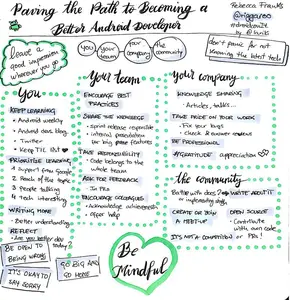 Paving the Path to Becoming a
Better Android Developer
Rebecca Franks
@riggaroo
by @
leave a
good impression
wherever you go
you
your team
your company
the community
don't panic for not
knowing the latest tools
You
KEEP LEARNING
• Android weekly
• Android devs blog
• Twitter
• Keep TIL list ♥
PRIORITIZE LEARNING
1 Support from Google
2 Reach of the topic
3 People talking
4 Tech interesting
WRITING MORE
• Better understanding
REFLECT
• Are you better dev
today?
BE OPEN TO
BEING WRONG
IT'S OKAY TO
SAY SORRY
GO BIG AND
GO HOME
Your team
ENCOURAGE BEST
PRACTICES
SHARE THE KNOWLEDGE
• sprint release responsible
• integral presentations
for big features
TAKE RESPONSIBILITY
• Code belongs to the
whole team
ASK FOR FEEDBACK
• In PRs
ENCOURAGE COLLEAGUES
• Acknowledge achievements
• Offer help
Be
Mindful
Your company
KNOWLEDGE SHARING
• Articles, talks...
TAKE PRIDE ON YOUR WORK
• Fix your bugs
• Check & answer reviews
BE PROFESSIONAL
#GRATITUDE appreciation
the community
Battle with devs? WRITE ABOUT IT
or implementing style
CREATE OR JOIN
A MEETUP
OPEN SOURCE
• Contribute
with own code
or PRs
IT'S NOT A COMPETITION